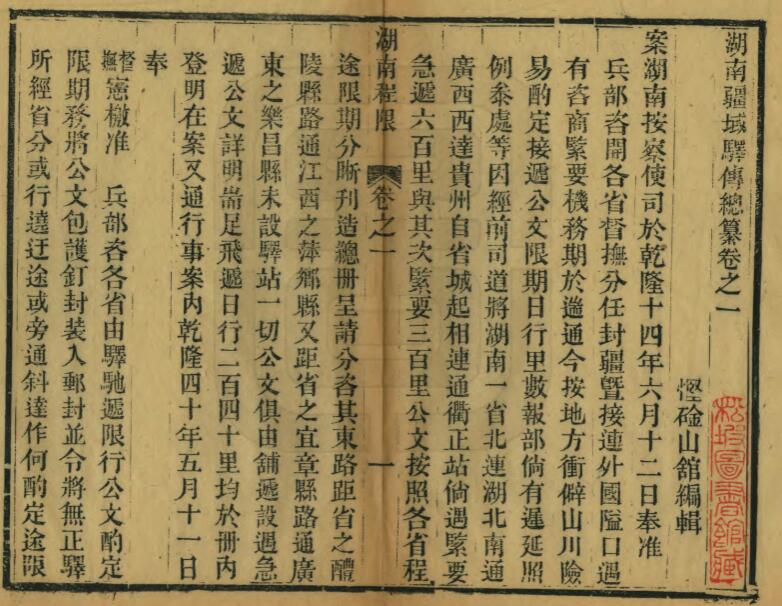 湖南疆域驛傳總纂卷之一
慳碒山舘編輯
案湖南按察使司於乾隆十四年六月十二日奉准
兵部咨開各省督撫分任封疆曁接連外國隘口遇
有咨商緊要機務期於遄通今按地方衝僻山川險
易酌定接遞公文限期日行里數報部倘有遲延照
例叅處等因經前司道將湖南一省北連湖北南通
廣西西達貴州自省城起相連通衢正站倘遇緊要
急遞六百里與其次緊要三百里公文按照各省程
湖南程限 卷之一 一
途限期分晰刊造總冊呈請分咨其東路距省之醴
陵縣路通江西之萍鄉縣又距省之宜章縣路通廣
東之樂昌縣未設驛站一切公文俱由舖遞設遇急
遞公文詳明耑足飛遞日行二百四十里均於冊內
登明在案又通行事案內乾隆四十年五月十一日
奉
督撫憲檄准 兵部咨各省由驛馳遞限行公文酌定
限期務將公文包護釘封裝入郵封並令將無正驛
所經省分或行遶迂途或旁通斜達作何酌定途限
松坡圖書館藏